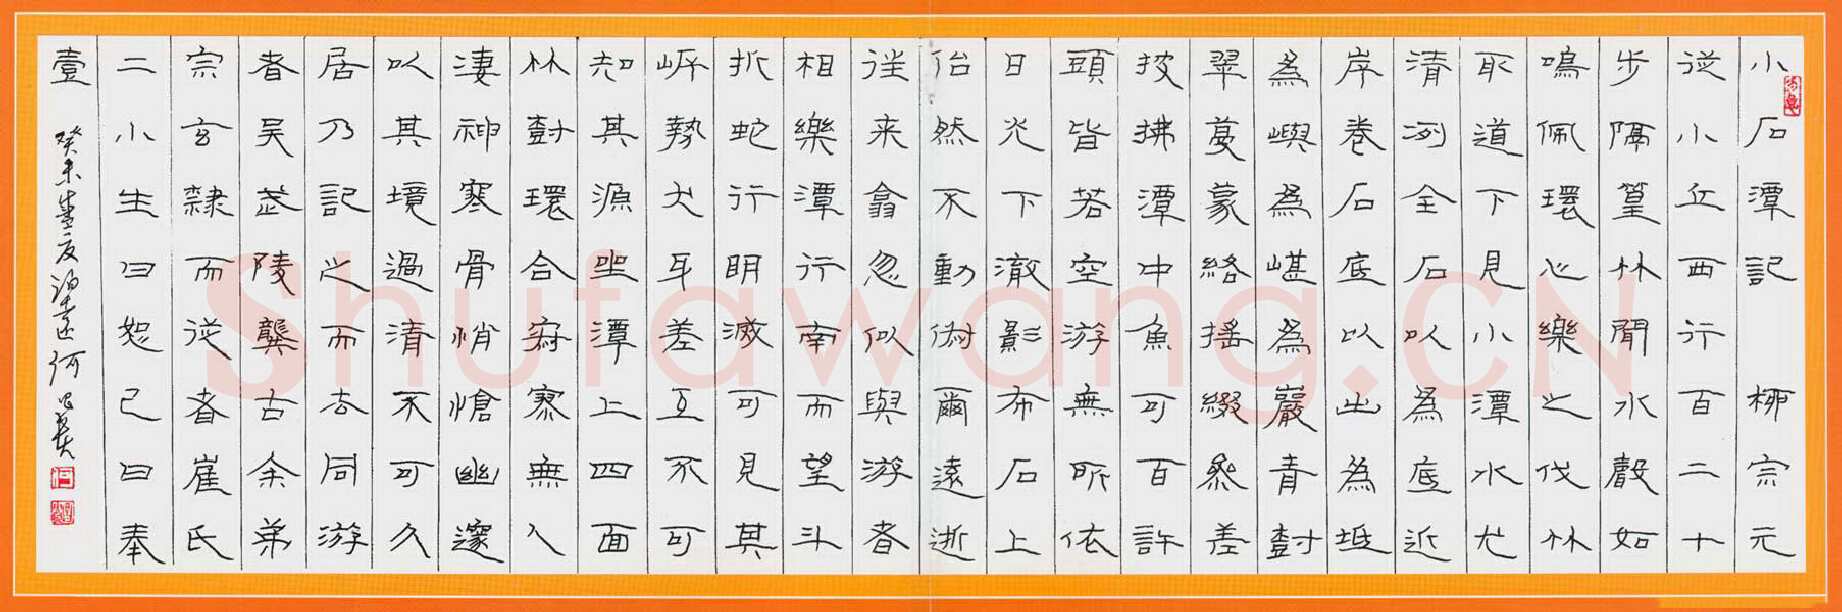 小石潭記 柳宗元
從小丘西行百二十
步隔篁竹聞水聲如
鳴佩環心樂之伐竹
取道下見小潭水尤
清冽全石以為底近
岸卷石底以出為坻
為嶼為嵁為巖青樹
翠蔓蒙絡搖綴參差
披拂潭中魚可百許
頭皆若空游無所依
日光下澈影布石上
佁然不動俶爾遠逝
往來翕忽似與游者
相樂潭行南而望斗
折蛇行明滅可見其
岸勢犬牙差互不可
知其源坐潭上四面
竹樹環合寂寥無人
淒神寒骨悄愴幽邃
以其境過清不可久
居乃記之而去同游
者吳武陵龔古余弟
宗玄隸而從者崔氏
二小生曰恕己曰奉
壹
癸未 何
Shufawang.CN